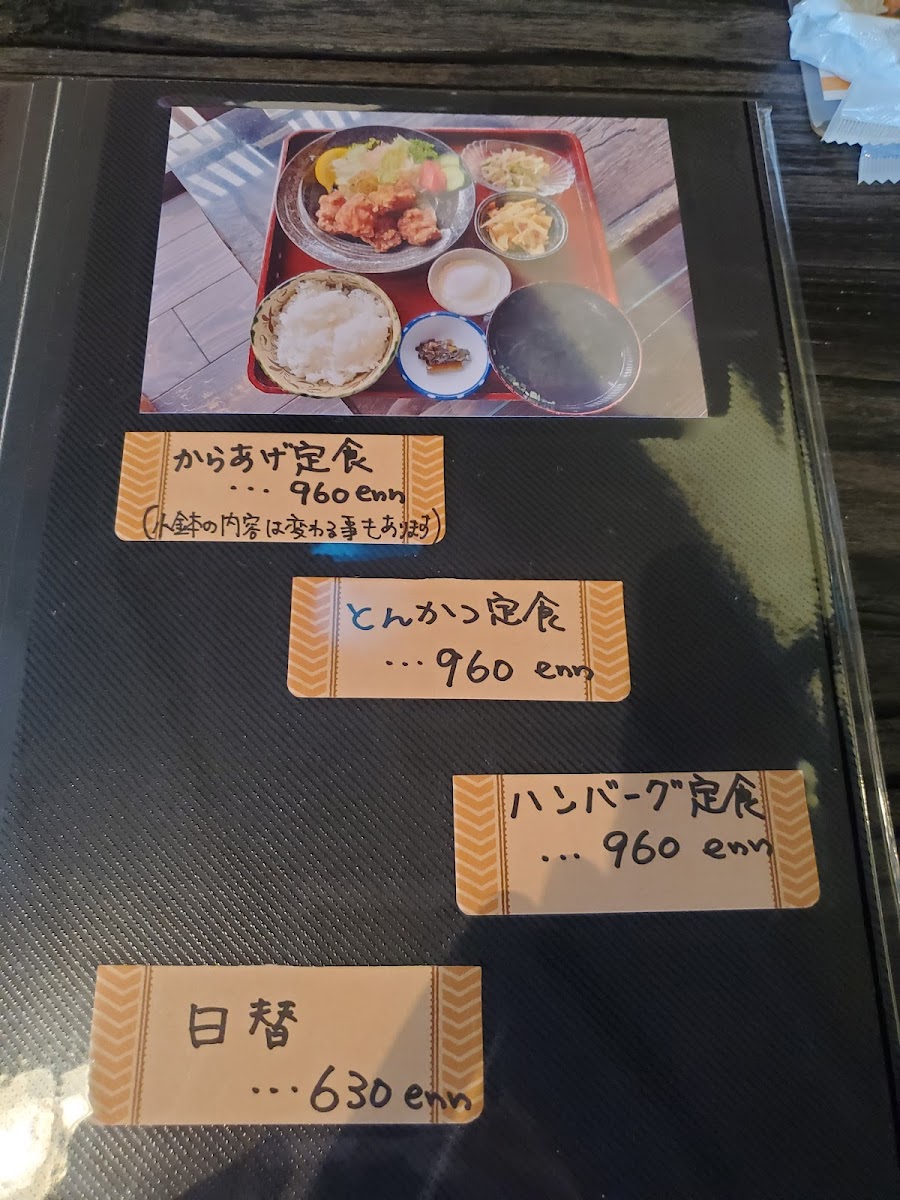 からあげ定食
... 960 enn
(小鉢の内容は変わる事もあります)
とんかつ定食
... 960 enn
ハンバーグ定食
... 960 enn
日替
... 630 enn